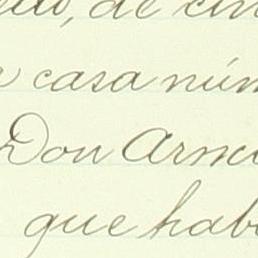 , de cin
casa núm
Don Arno
que hab